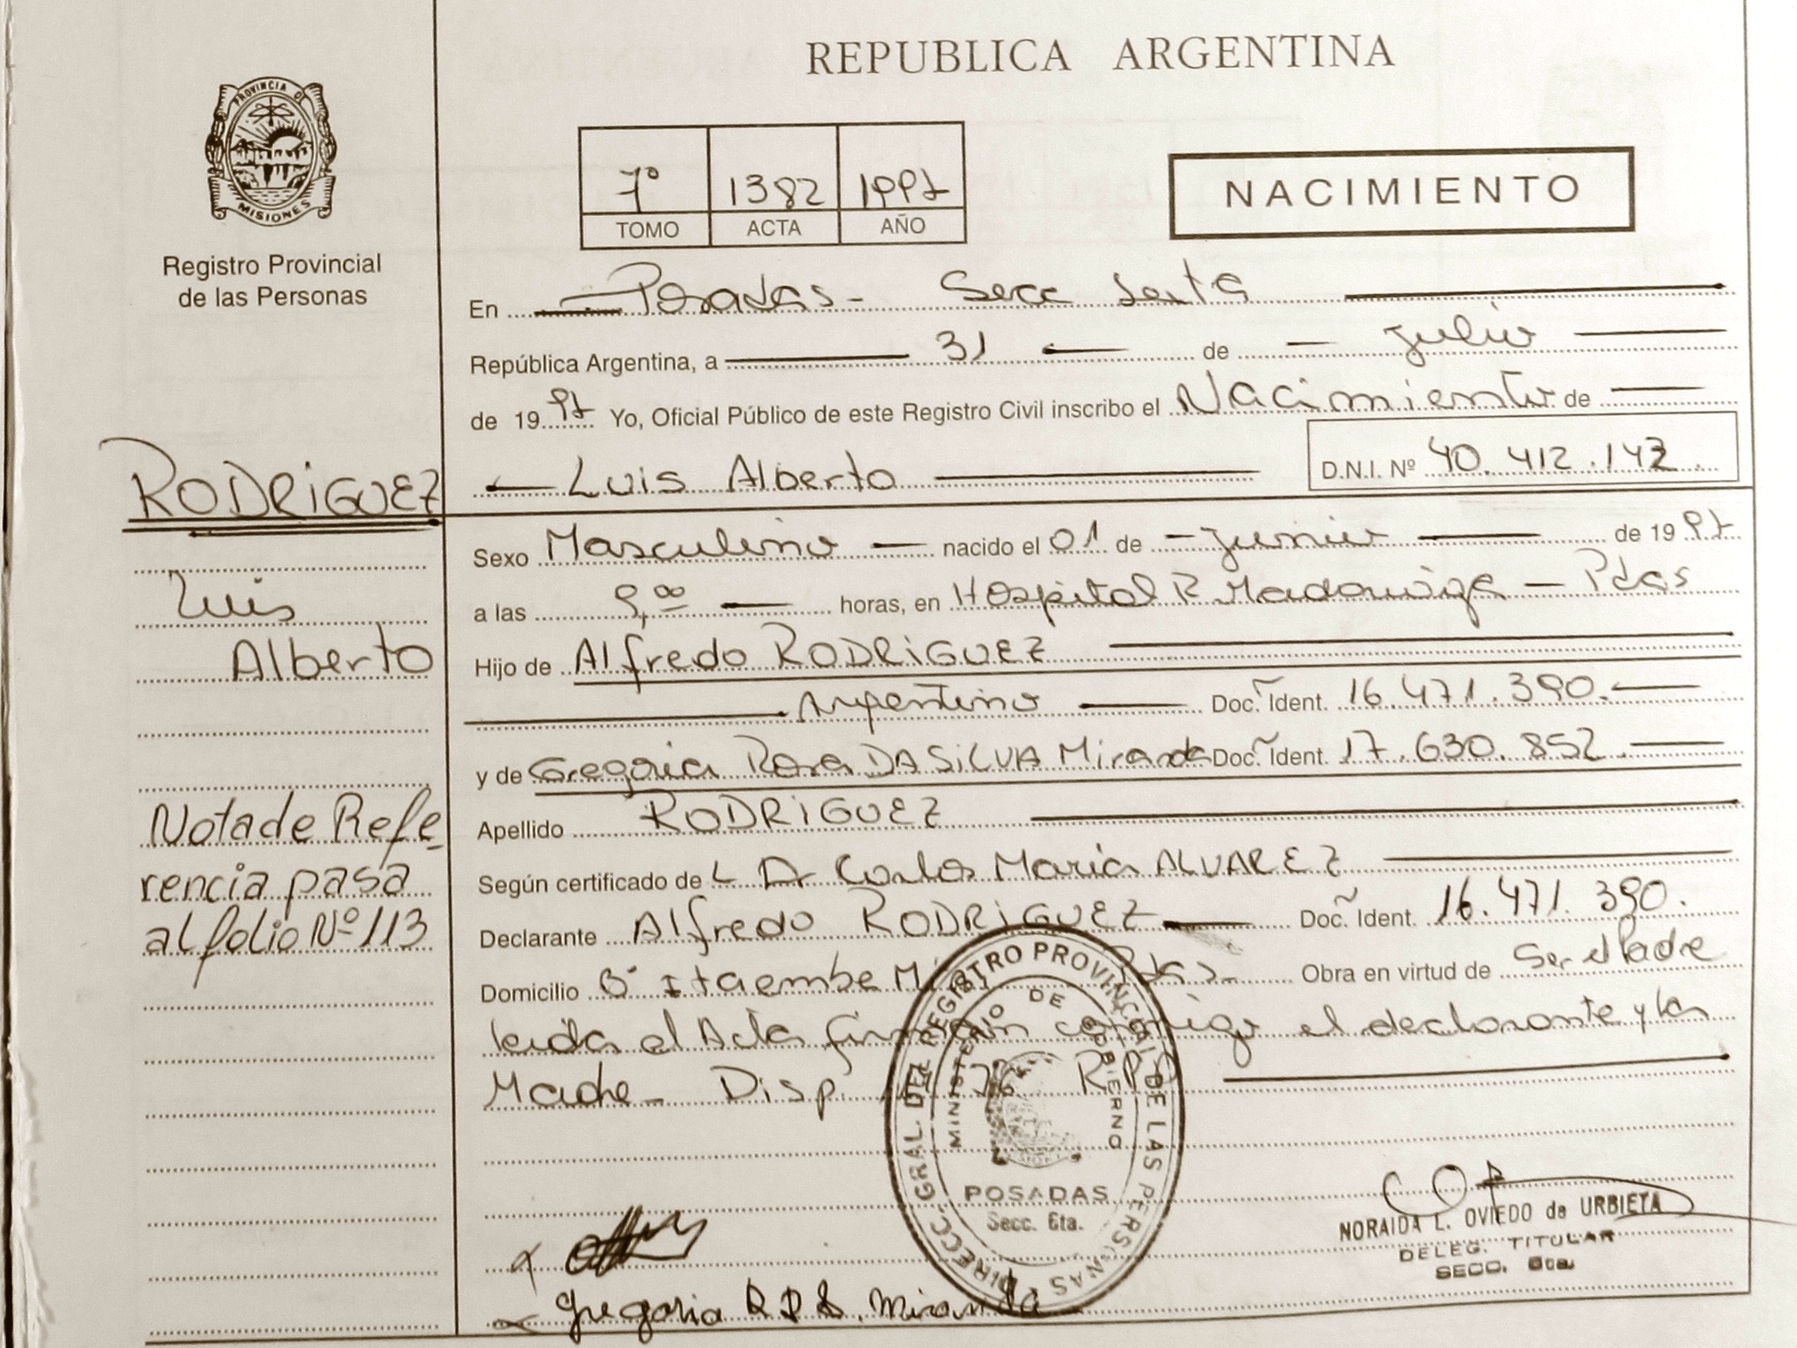 REPUBLICA ARGENTINA
PROVINCIA DE
MISIONES
Registro Provincial
de las Personas
7º 1382 1997
TOMO ACTA AÑO
NACIMIENTO
En Posadas- Secc Sexta
República Argentina, a 31 de julio
de 19 97 Yo, Oficial Público de este Registro Civil inscribo el Nacimiento de
Luis Alberto D.N.I. Nº 40.412.142
RODRIGUEZ
Luis
Alberto
Sexo Masculino nacido el 01 de junio de 19 97
a las 9,00 horas, en Hospital R Madariaga - Pdas
Hijo de Alfredo RODRIGUEZ
Argentino Doc. Ident. 16.471.390.
y de Gregoria Rosa DA SILVA Miranda Doc. Ident. 17.630.852
Apellido RODRIGUEZ
Según certificado de L Dr Carlos Maria ALVAREZ
Declarante Alfredo RODRIGUEZ Doc. Ident. 16.471.390.
Domicilio Bº Itaembe Obra en virtud de Ser el Padre
leida el Acta firman conmigo el declarante y la
Madre- Disp.
Nota de Refe-
rencia pasa
al folio Nº 113
DIRECC. GRAL. DEL REGISTRO PROVINCIAL DE LAS PERSONAS
MINISTERIO DE GOBIERNO
POSADAS
Secc. 6ta.
NORAIDA L. OVIEDO de URBIETA
DELEG. TITULAR
SECC. 6ta.
Gregoria R D S. Miranda